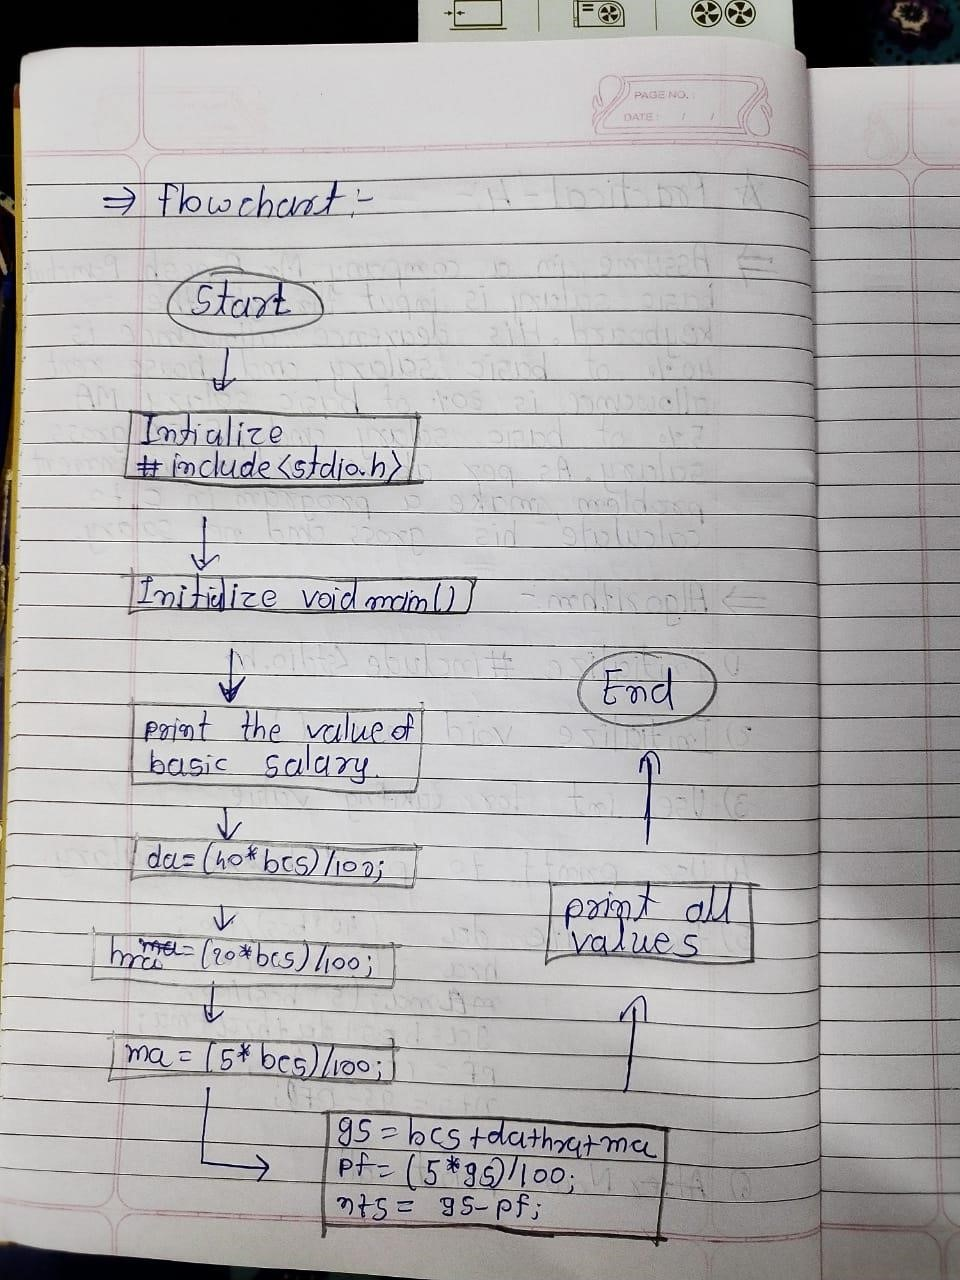 PAGE NO.:
DATE: / /
⇒ flowchart :-
Start
Intialize
# include <stdio.h>
Initialize void main()
print the value of
basic salary.
da = (40* bcs)/100;
hra = (20*bcs)/100;
ma = (5* bcs)/100;
gs = bcs+da+hra+ma
pf = (5*gs)/100;
nts = gs-pf;
print all
values
End